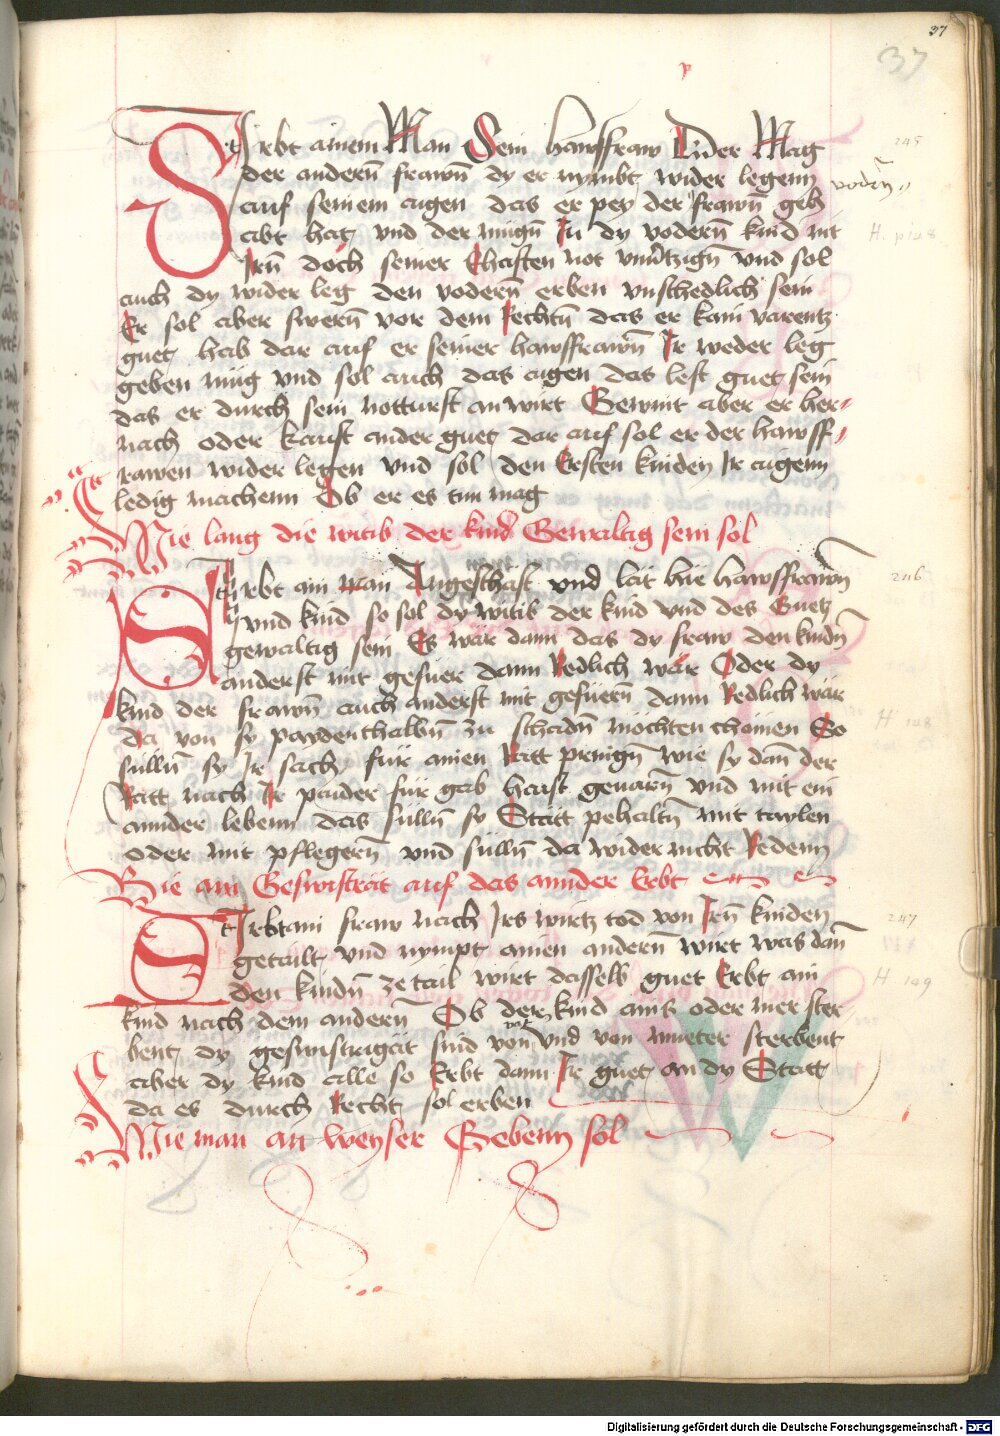 37
37
Stirbt ainem Man Sein hawsfraw Der Mag
der anderñ frawñ dy er nymbt wider legenn vodrñ
auf seinem aigen das er pey der frawñ geh
abt hat vnd der mügñ Im dy voderñ kind nit
Irñ doch seiner Ehaften not vnuᵉrtzigñ vnd sol
auch dy wider leg den voderñ erben vnschedlich sein
Er sol aber swerñ vor dem Rechtñ das er kain varentz
guet hab dar auf er seiner hawsfrawñ Ir weder leg
geben müg vnd sol auch das aigen das lest guet sein
das er durch sein notturft an wirt Gewint aber er her-
nach oder kauft ander guet dar auf sol er der hawsf-
rawen wider legen vnd sol den Ersten kinden Ir aigenn
ledig machenn Ob er es tun mag
Wie lang die witib der kind Gewaltig sein sol
Stirbt ain man Angeschaft vnd lät hie hawsfrawñ
vnd kind so sol dy witib der kind vnd des Guetz
gewaltig sein Es wär dann das dy fraw den kindñ
anderst mit gefüer dann Redlich wär Oder dy
kind der frawñ auch anderst mit gefüerñ dann Redlich wär
da von sy paydenthalbñ zu schadñ möchten chömen So
süllñ sy Ir sach für ainen Ratt pringñ wie sy dañ der
Ratt nach Ir paider für gab haist geuarñ vnd mit ein
annder lebenn das süllñ sy Stätt pehaltñ mit taylen
oder mit pflegerñ vnd süllñ da wider nicht Redenn
Wie ain Geswisträt auf das annder Erbt
Stirbt ain fraw nach Irs wirtz tod von Irñ kinden
getailt vnd nympt ainen anderñ wirt was dañ
den kindñ ze tail wirt dasselb guet Erbt ain
kind nach dem anderñ Ob der kind ains oder mer ster-
bent dy geswistrigät sind von vnd von mueter sterbent
aber dy kind alle so Erbt dann Ir guet an dy Statt
da es durch Recht sol erben
Wie man an weyser Gebenn sol
245
H. p 148
246
H 148
247
H 149
Digitalisierung gefördert durch die Deutsche Forschungsgemeinschaft - DFG